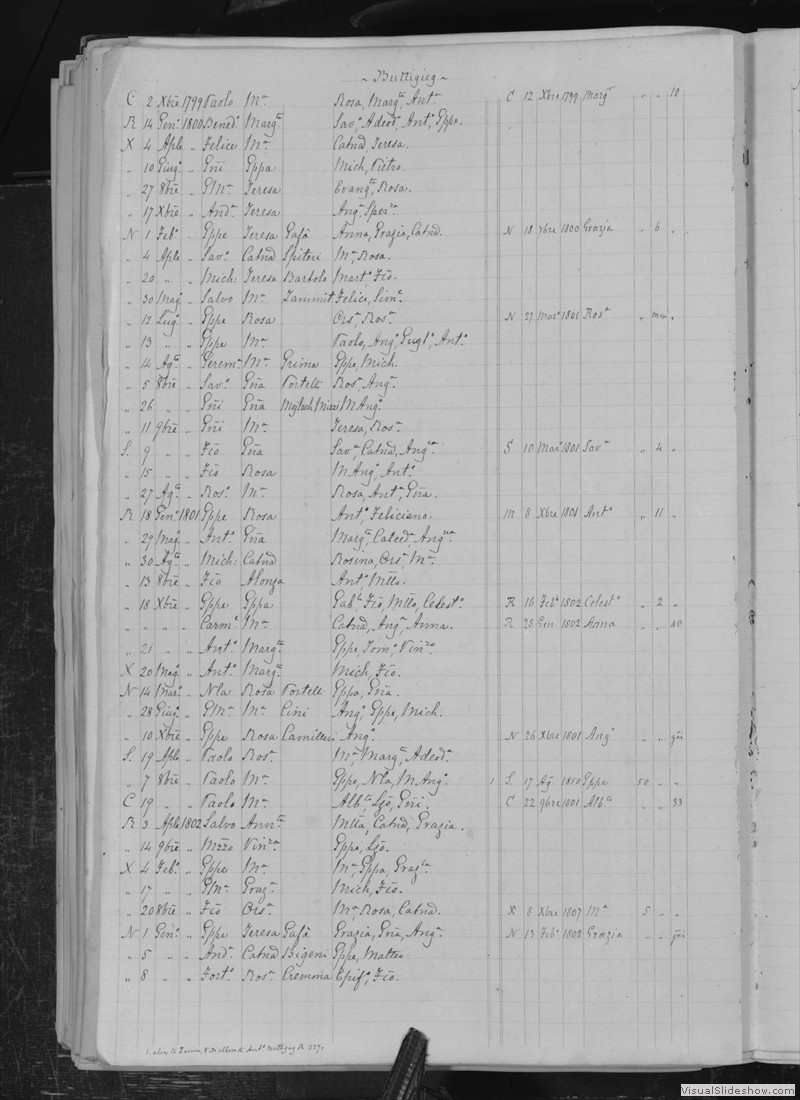 ~ Buttigieg ~
C 2 Xbre 1799 Paolo Mª Rosa, Margta, Antª C 12 Xbre 1799 Margt " " 10
R 14 Genº 1800 Benedº Margta Savª, Adeodª, Antª, Gppe.
X 4 Aple " Felice Mª Catnd, Teresa.
" 10 Giugº " Gñi Gppa Mich, Pietro.
" 27 8bre " GMª Teresa Evangta, Rosa.
" 17 Xbre " Andª Teresa Angª,
N 1 Febº " Gppe Teresa Gafà Anna, Grazia, Catnd. N 18 7bre 1800 Grazia " 6 "
" 4 Aple " Savº Catnd Spiteri Mª, Rosa.
" 20 " " Mich: Teresa Bartolo Martº, Fio.
" 30 Magº " Salvo Mª Zammit Felice, Simª
" 12 Lugº " Gppe Rosa Orsª, Rosª. N 27 Marº 1801 Rosª "
" 13 " " Gppe Mª Paolo, Angº, Guglº, Antº.
" 14 Agto " Geremª Mª Grima Gppe, Mich.
" 5 8bre " Savº Gña Portelli Rosª, Angª.
" 26 " " Gñi Gña M Angº.
" 11 9bre " Gñi Mª Teresa, Rosª.
S. 9 " " Fio Gña Savª, Catnd, Angca. S 10 Marº 1801 Savª " 4 "
" 15 " " Fio Rosa M Angº, Antº.
" 27 Agto " Rosº Mª Rosa, Antª, Gña.
R 18 Genº 1801 Gppe Rosa Antº, Feliciano. M 8 Xbre 1801 Antº " 11 "
" 29 Magº " Antº Gña Margta, Caledª,
" 30 Agto " Mich: Catnd Rosina, Orsª, Mª.
" 13 8bre " Fio Alonza Antº, Mtto.
" 18 Xbre " Gppe Gppa Gabl, Fio, Mtto, Celestº. R 16 Febº 1802 Celestº " 2 "
" " " " Carmº Mª Catnd, Angª, Anna. R 28 Gen 1802 Anna " " 40
" 21 " " Antº Margta Gppe, Tomº, Vinzº.
X 20 Magº " Antº Margta Mich, Fio.
N 14 Marº " Nla Rosa Portelli Gppa, Gña.
" 28 Giugº " GMª Mª Cini Angº, Gppe, Mich.
" 10 Xbre " Gppe Rosa Camilleri Angº. N 26 Xbre 1801 Angº " "
S. 19 Aple " Paolo Rosª Mª, Margta, Adeodª.
" 7 8bre " Paolo Mª Gppe, Nla, M Angº. 1 S. 17 Agº 1850 Gppe 50 " "
C 19 " " Paolo Mª Albta, Ljo, Gñi. C 22 9bre 1801 Albta " " 33
R 3 Aple 1802 Salvo Annta Mtta, Catnd, Grazia.
" 14 9bre " Mzzo Vinzª Gppe, Ljo.
X 4 Febº " Gppe Mª Mª, Gppa,
" 17 " " GMª Grazª Mich, Fio.
" 20 8bre " Fio Orsª Mª, Rosa, Catnd. X 6 Xbre 1807 Mª 5 " "
N 1 Genº " Gppe Teresa Gafà Grazia, Gña, Angª. N 13 Febº 1802 Grazia " "
" 5 " " Andª Catnd Bigeni Gppe, Matteo
" 8 " " Fortº Rosª Cremona Epifº, Fio.
VisualSlideshow.com